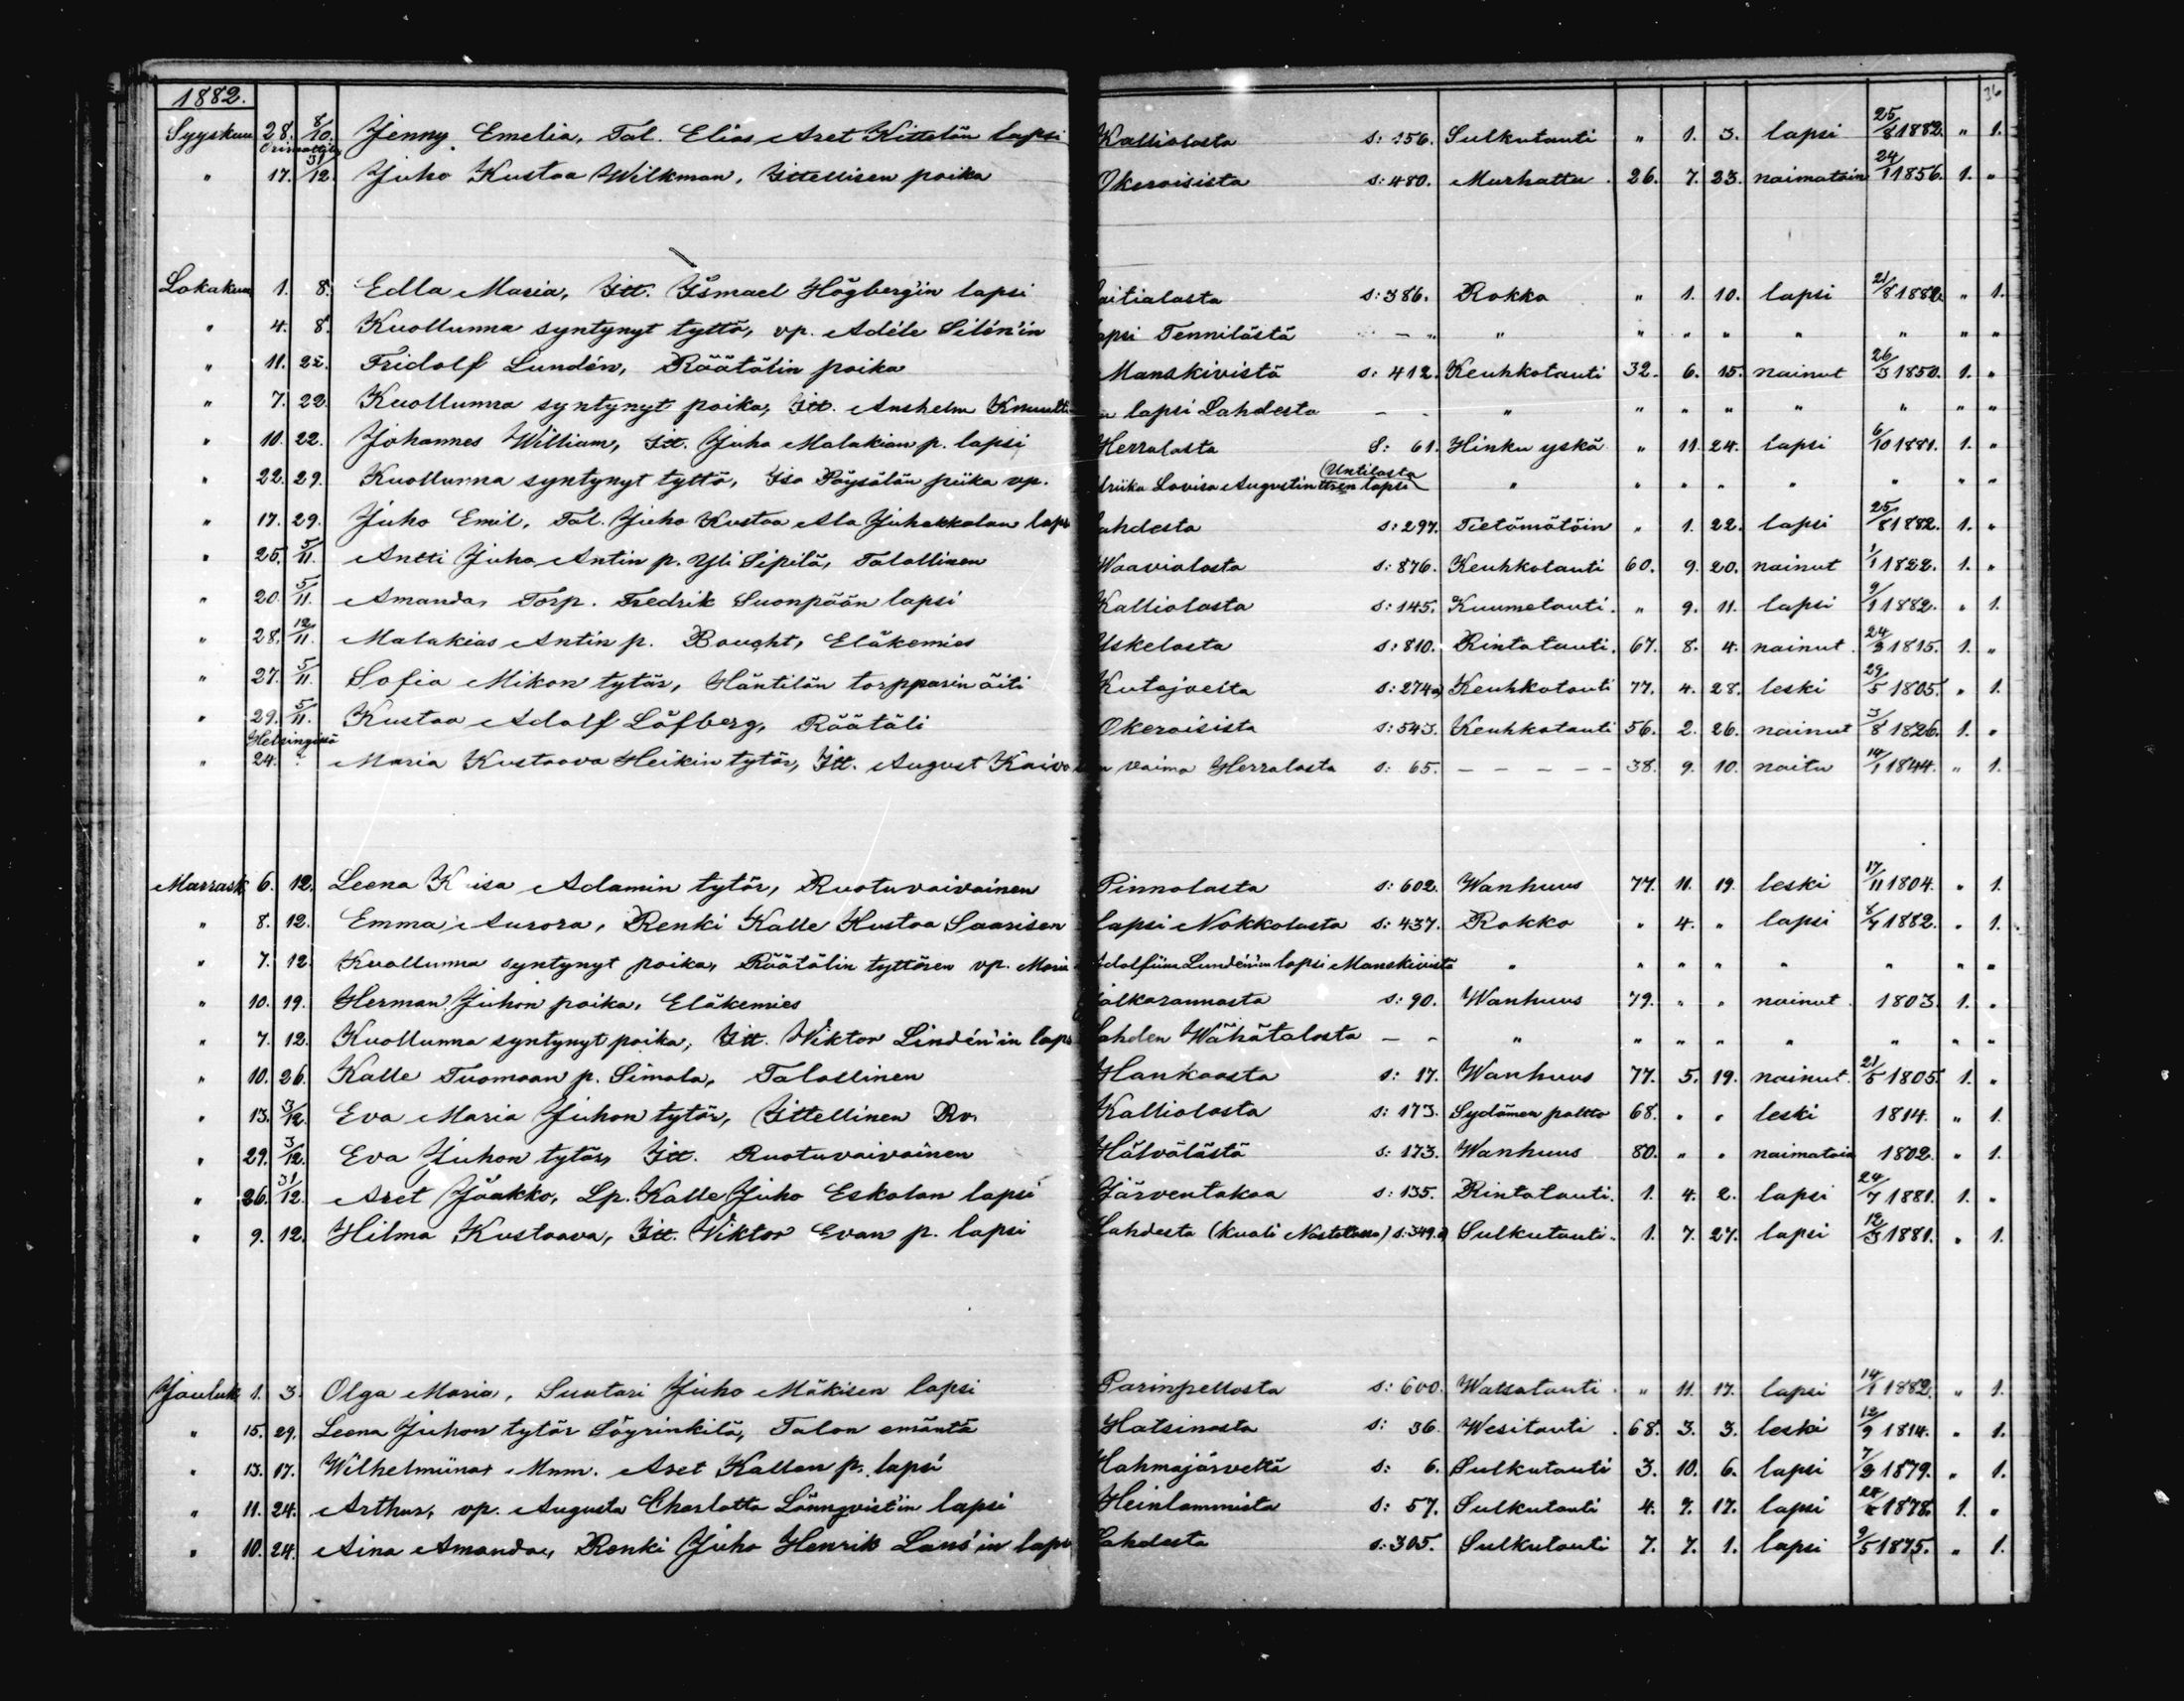 1882.
36
Syyskuu 28. 8/10. Jenny Emelia, Tal. Elias Aret Kittelän lapsi Kalliolasta s: 156. Sulkutauti " 1. 3. lapsi 25/8 1882. " 1.
" 17. 31/12. Juho Kustaa Wilkman, Ittellisen poika Okeroisista s: 480. Murhattu. 26. 7. 23. naimatoin 24/1 1856. 1. "
Lokakuu 1. 8. Edla Maria, Itt. Ismael Högberg'in lapsi aitialasta s: 386. Rokko " 1. 10. lapsi 21/8 1882. " 1.
" 4. 8. Kuollunna syntynyt tyttö, vp. Adéle Silén'in lapsi Tennilästä - " " " " " " " " "
" 11. 22. Fridolf Lundén, Räätälin poika Manskivistä s: 412. Keuhkotauti 32. 6. 15. nainut 26/3 1850. 1. "
" 7. 22. Kuollunna syntynyt poika, Itt. Anshelm Knuutti n lapsi Lahdesta - - " " " " " " " "
" 10. 22. Johannes William, Itt. Juha Malakian p. lapsi Herralasta S: 61. Hinku yskä " 11. 24. lapsi 6/10 1881. 1. "
" 22. 29. Kuollunna syntynyt tyttö, Iso Päysälän piika vp. driika Lovisa Augustin ttren lapsi (Untilasta " " " " " " " "
" 17. 29. Juho Emil, Tal. Juho Kustaa Ala Juhakkalan laps ahdesta s: 297. Tietämätöin " 1. 22. lapsi 25/8 1882. 1. "
" 25. 5/11. Antti Juho Antin p. Yli Sipilä, Talollinen Waavialasta s: 876. Keuhkotauti 60. 9. 20. nainut 1/1 1822. 1. "
" 20. 5/11. Amanda, Torp. Fredrik Suonpään lapsi Kalliolasta s: 145. Kuumetauti. " 9. 11. lapsi 9/1 1882. " 1.
" 28. 12/11. Malakias Antin p. Bought, Eläkemies Uskelasta s: 810. Rintatauti. 67. 8. 4. nainut. 24/3 1815. 1. "
" 27. 5/11. Sofia Mikon tytär, Häntilän torpparin äiti Kutajoelta s: 274a) Keuhkotauti 77. 4. 28. leski 29/5 1805. " 1.
" 29. 5/11. Kustaa Adolf Löfberg, Räätäli Okeroisista s: 543. Keuhkotauti 56. 2. 26. nainut 3/8 1826. 1. "
Helsingissä
" 24. ? Maria Kustaava Heikin tytär, Itt. August Kaivo n vaimo Herralasta s: 65. - - - - - 38. 9. 10. naitu 14/1 1844. " 1.
Marrask. 6. 12. Leena K isa Adamin tytär, Ruotuvaivainen Pinnolasta s: 602. Wanhuus 77. 11. 19. leski 17/11 1804. " 1.
" 8. 12. Emma Aurora, Renki Kalle Kustaa Saarisen lapsi Nokkolasta s: 437. Rokko " 4. " lapsi 8/7 1882. " 1.
" 7. 12. Kuollunna syntynyt poika, Räätälin tyttären vp. Maria Adolfiina Lundén'in lapsi Manskivistä " " " " " " " "
" 10. 19. Herman Juhon poika, Eläkemies Jalkarannasta s: 90. Wanhuus 79. " " nainut. 1803. 1. "
" 7. 12. Kuollunna syntynyt poika, Itt. Wiktor Lindén'in laps Lahden Wähätalosta - - " " " " " " " "
" 10. 26. Kalle Tuomaan p. Simola, Talollinen Hankaasta s: 17. Wanhuus 77. 5. 19. nainut. 21/5 1805. 1. "
" 13. 3/12. Eva Maria Juhon tytär, Ittellinen Rv. Kalliolasta s: 173. Sydämen poltto 68. " " leski 1814. " 1.
" 29. 3/12. Eva Juhon tytär, Itt. Ruotuvaivainen Hälvälästä s: 173. Wanhuus 80. " " naimatoin 1802. " 1.
" 26. 31/12. Aret Jaakko, Lp. Kalle Juho Eskolan lapsi Järventakaa s: 135. Rintatauti. 1. 4. 2. lapsi 24/7 1881. 1. "
" 9. 12. Hilma Kustaava, Itt. Viktor Evan p. lapsi Lahdesta (kuoli Nastolassa) s: 349.a) Sulkutauti. 1. 7. 27. lapsi 12/3 1881. " 1.
Jouluk. 1. 3. Olga Maria, Suutari Juho Mäkisen lapsi Parinpellosta s: 600. Watsatauti. " 11. 17. lapsi 14/1 1882. " 1.
" 15. 29. Leena Juhon tytär Söyrinkilä, Talon emäntä Hatsinasta s: 36. Wesitauti. 68. 3. 3. leski 12/9 1814. " 1.
" 13. 17. Wilhelmiina, Mnm. Aret Kallan p. lapsi Hahmajärveltä s: 6. Sulkutauti 3. 10. 6. lapsi 7/2 1879. " 1.
" 11. 24. Arthur, vp. Augusta Charlotta Lönnqvist'in lapsi Heinlammista s: 57. Sulkutauti 4. 7. 17. lapsi 1878. 1. "
" 10. 24. Aina Amanda, Renki Juho Henrik Laus'in laps Lahdesta s: 305. Sulkutauti 7. 7. 1. lapsi 9/5 1875. " 1.